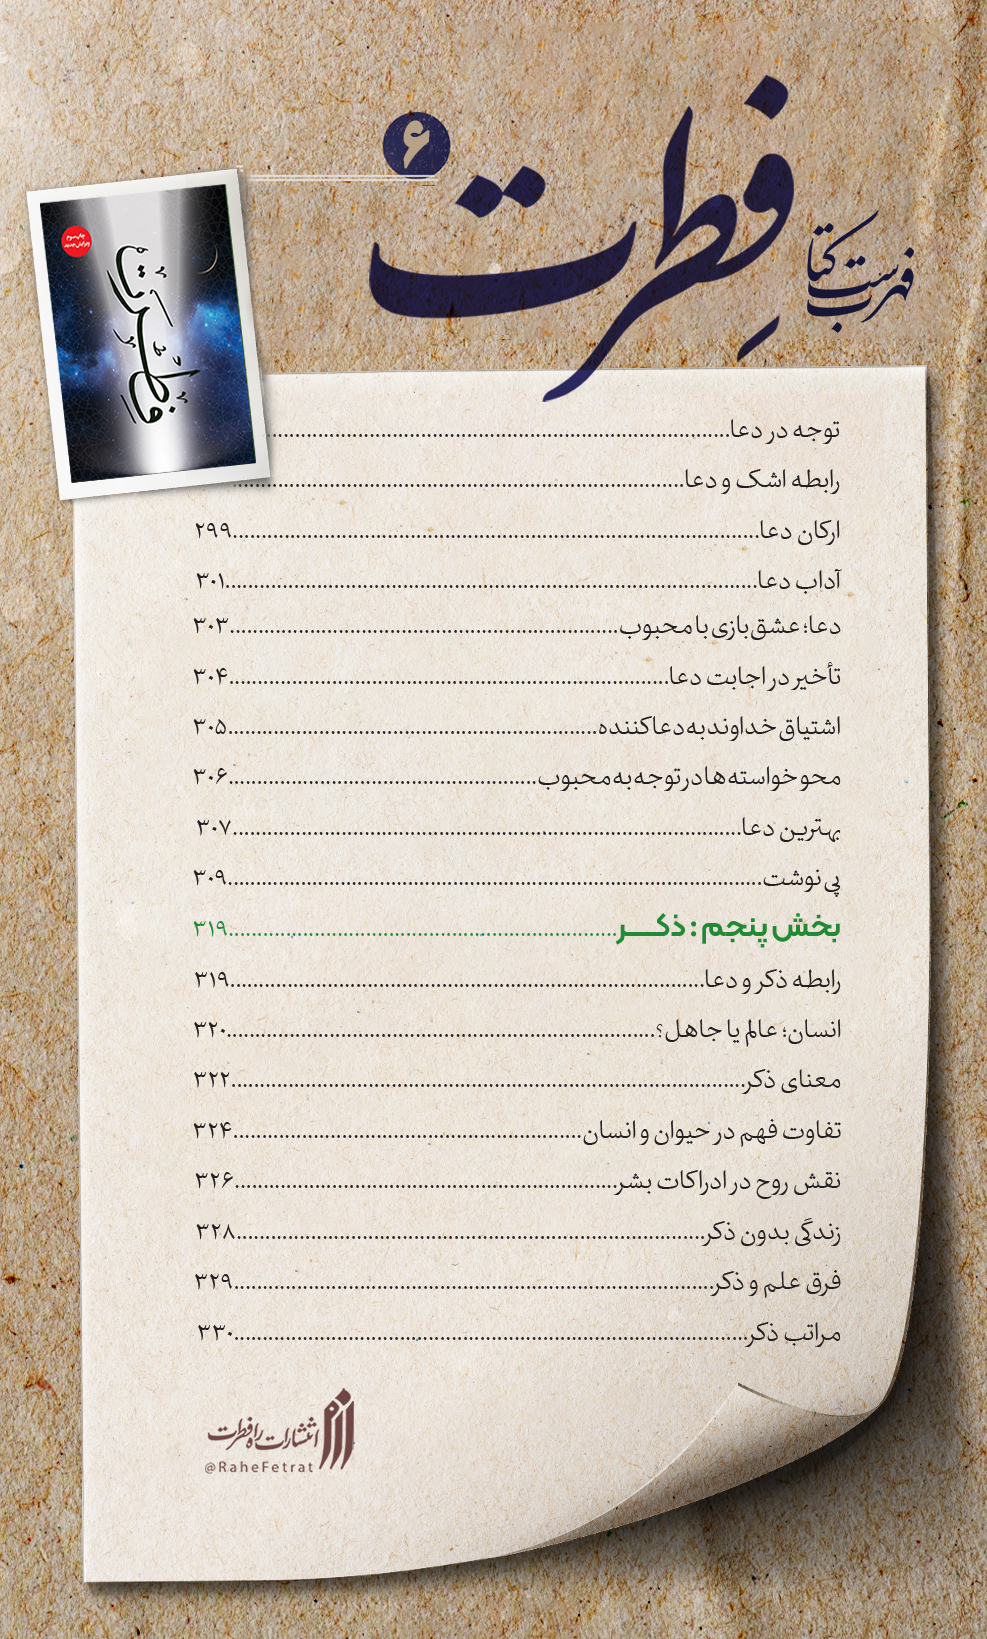 فهرست کتاب
فطرت
۶
چاپ سوم
ویرایش جدید
فطرت
توجه در دعا........................
رابطه اشک و دعا........................
ارکان دعا........................۲۹۹
آداب دعا........................۳۰۱
دعا؛ عشق‌بازی با محبوب........................۳۰۳
تأخیر در اجابت دعا........................۳۰۴
اشتیاق خداوند به دعا کننده........................۳۰۵
محو خواسته‌ها در توجه به محبوب........................۳۰۶
بهترین دعا........................۳۰۷
پی نوشت........................۳۰۹
بخش پنجم : ذکــــر........................۳۱۹
رابطه ذکر و دعا........................۳۱۹
انسان؛ عالم یا جاهل؟........................۳۲۰
معنای ذکر........................۳۲۲
تفاوت فهم در حیوان و انسان........................۳۲۴
نقش روح در ادراکات بشر........................۳۲۶
زندگی بدون ذکر........................۳۲۸
فرق علم و ذکر........................۳۲۹
مراتب ذکر........................۳۳۰
انتشارات راه فطرت
@RaheFetrat